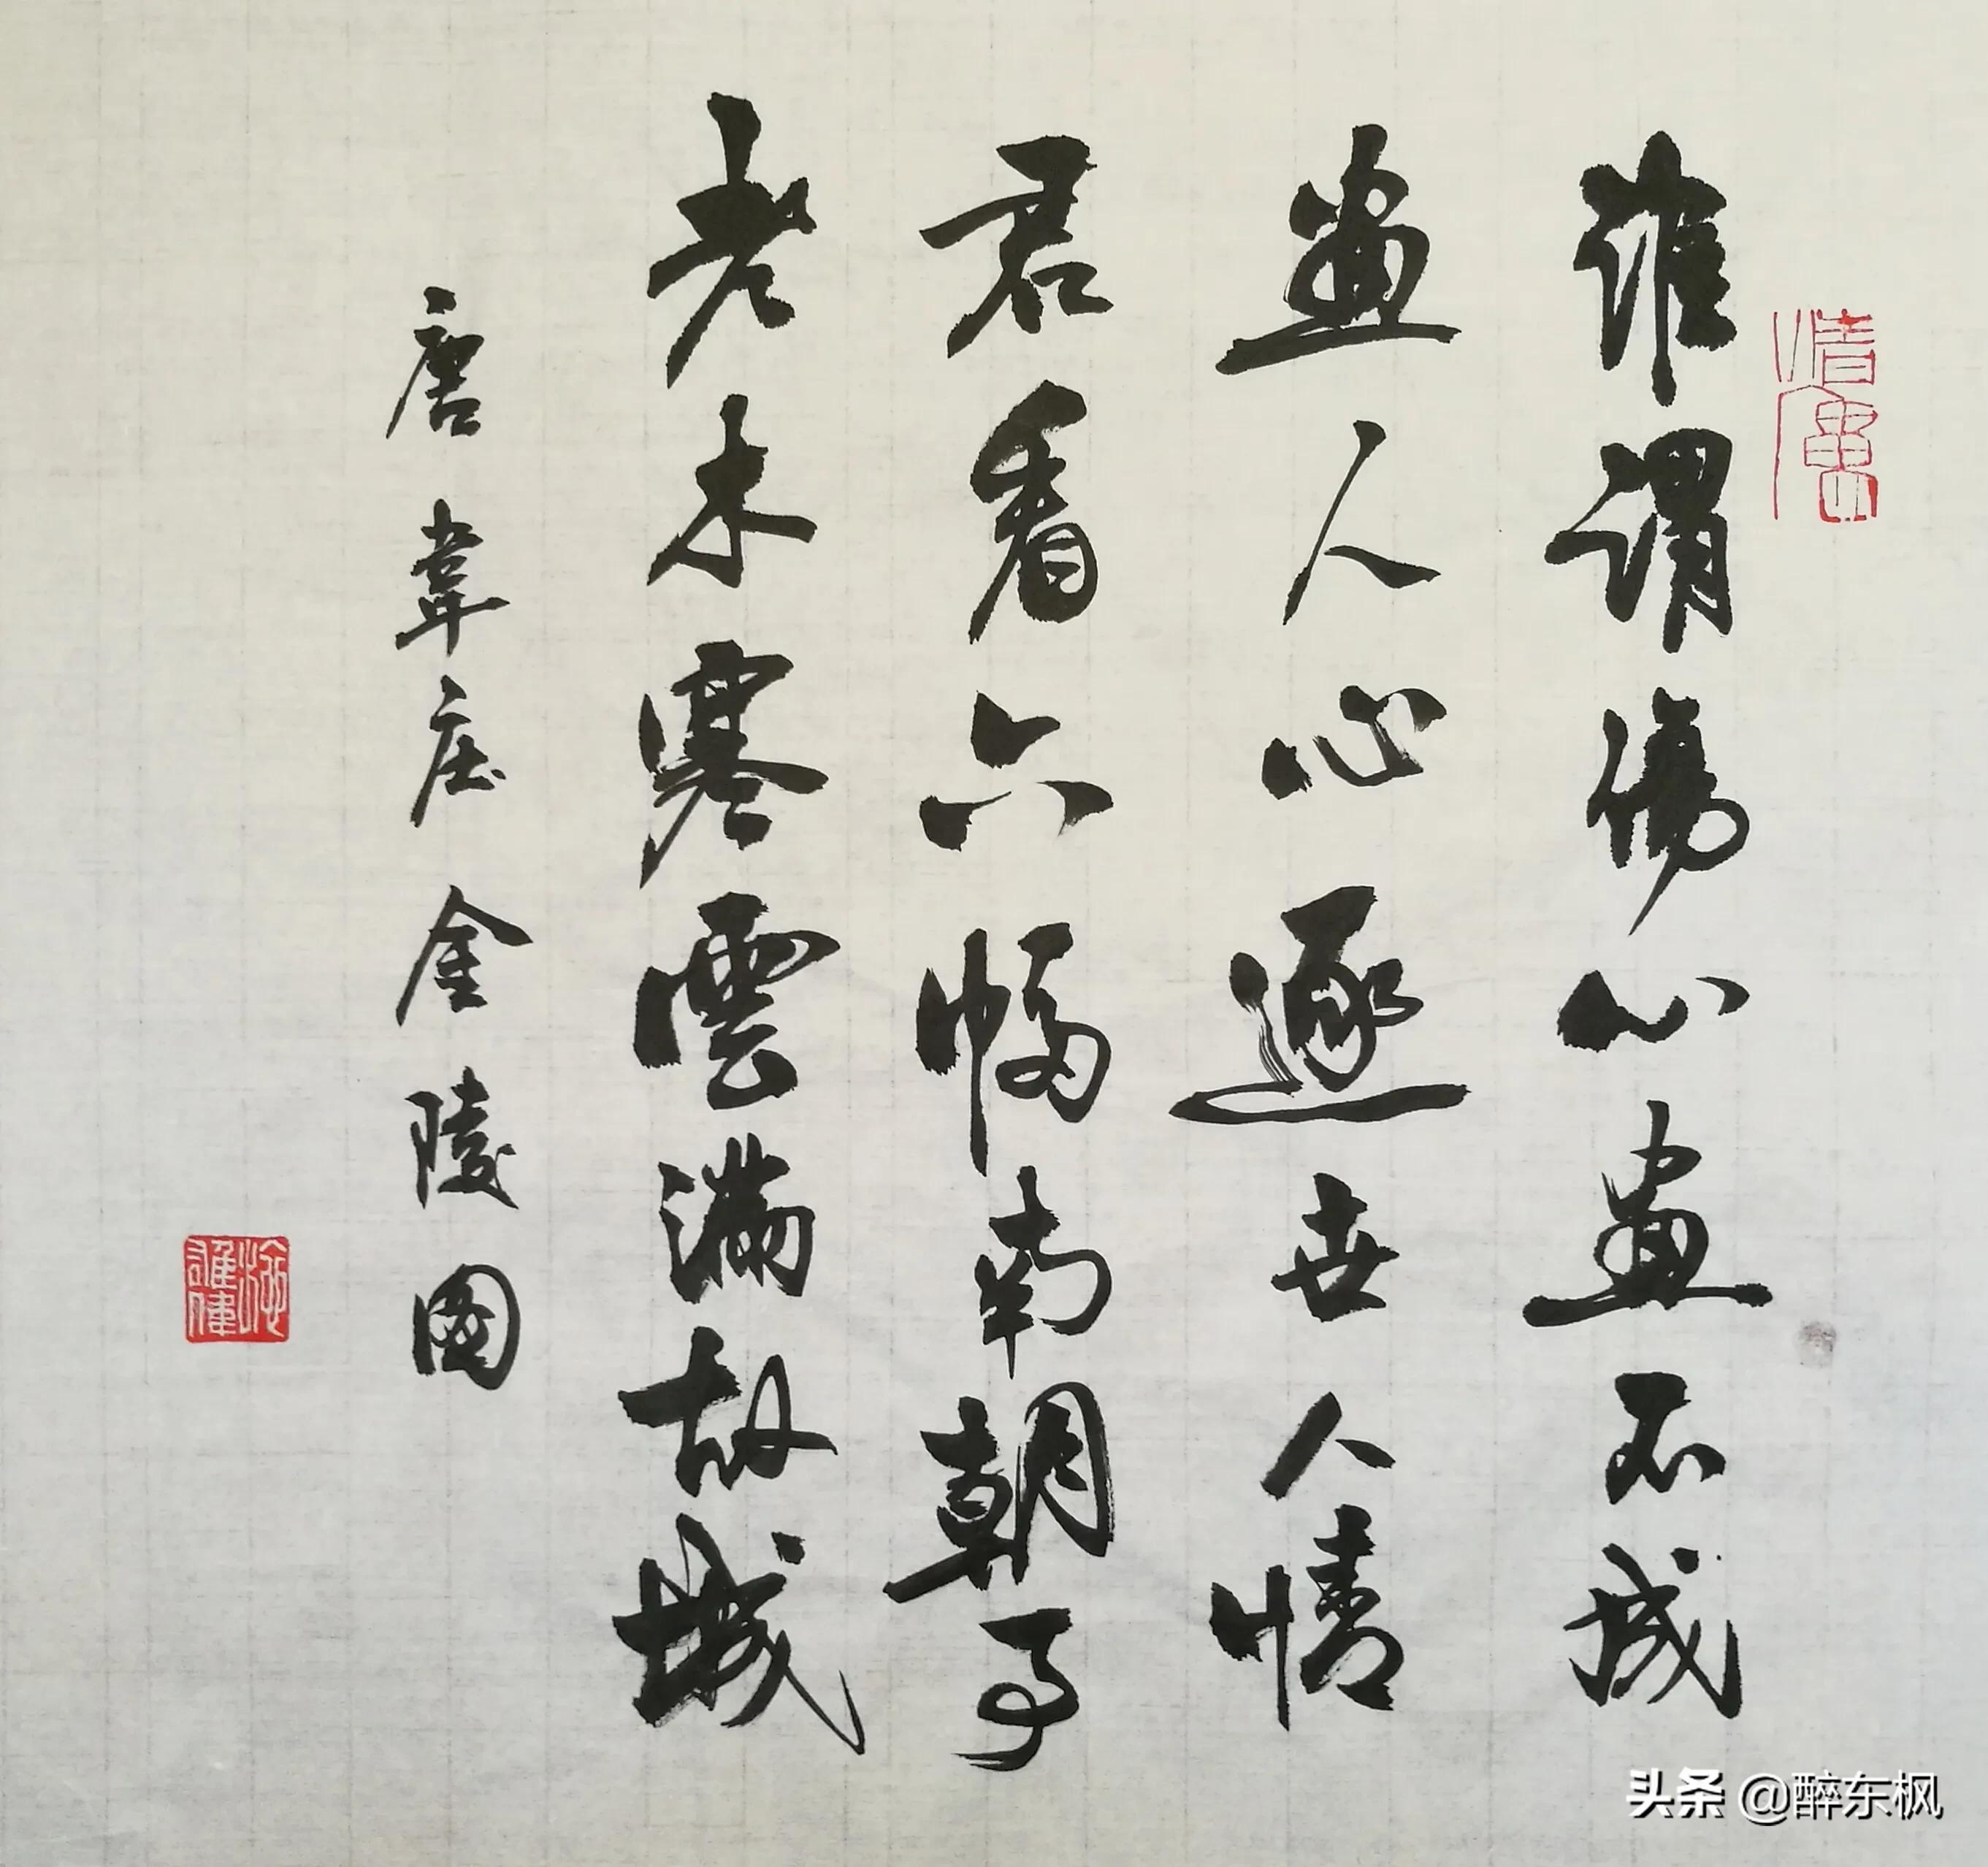 誰謂傷心畫不成
畫人心逐世人情
君看六幅南朝事
老木寒雲滿故城
唐韋庄金陵图
头条 @醉东枫